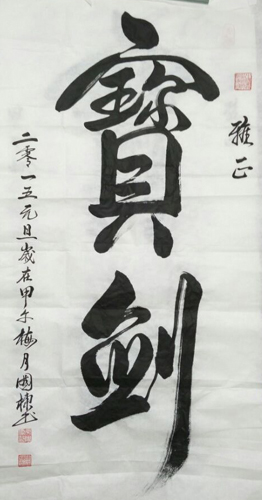 雅正
寶劍
二零一五元旦歲在甲午梅月國棟書